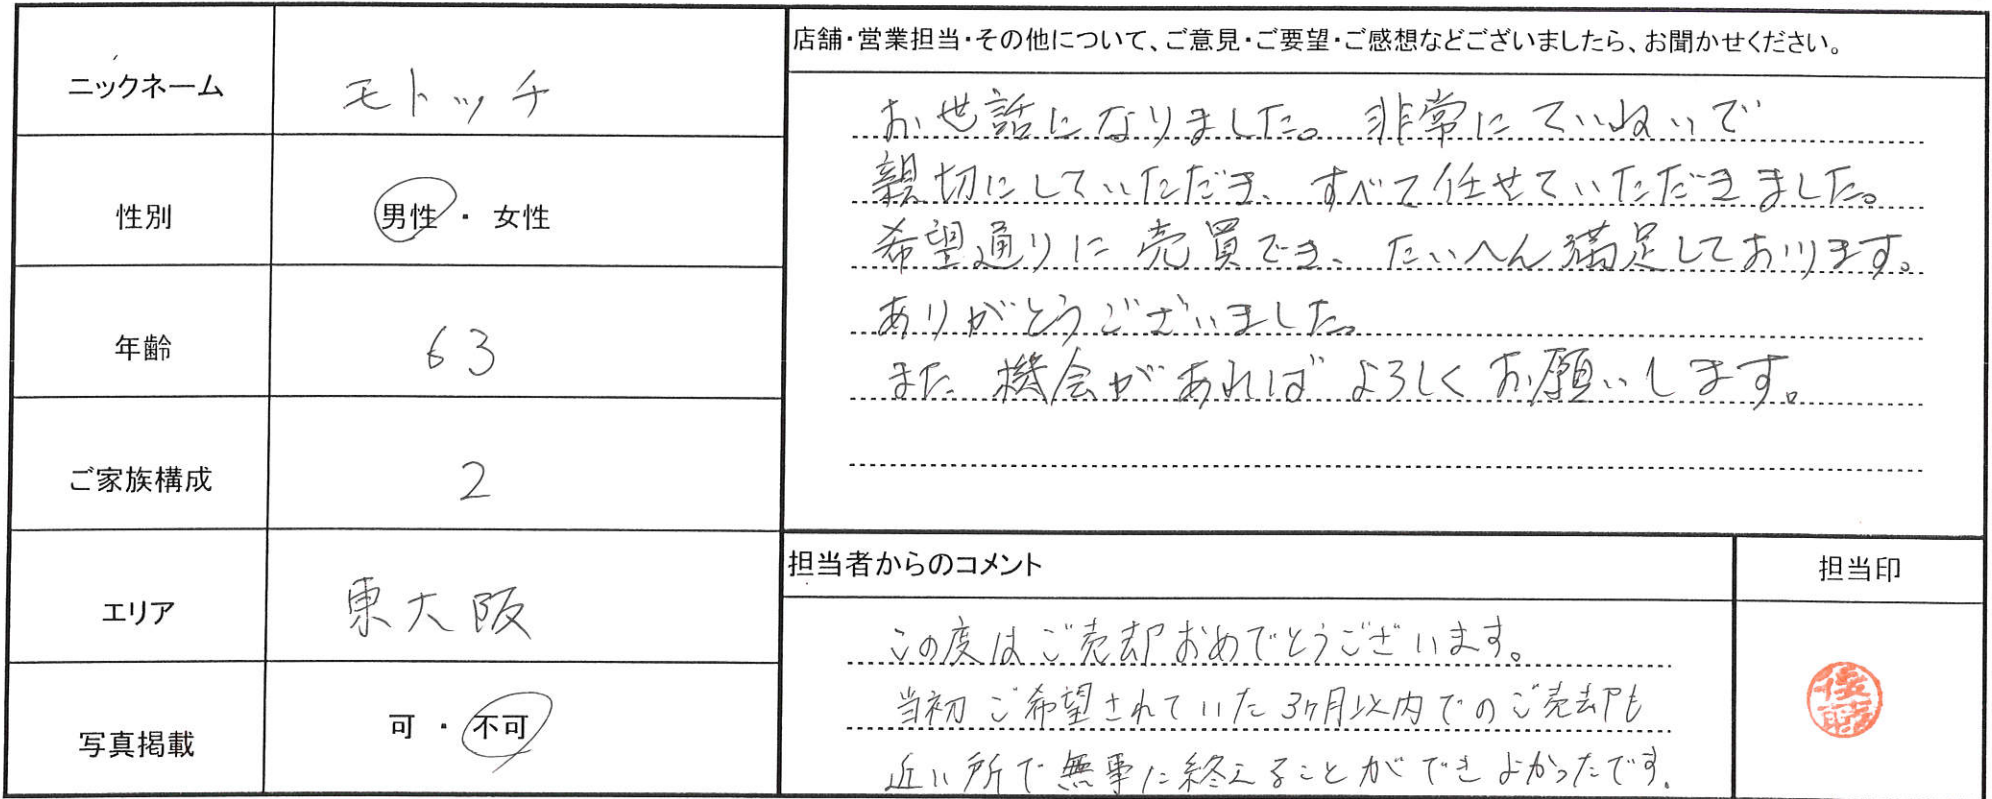 ニックネーム モトッチ
性別 男性・女性
年齢 63
ご家族構成 2
エリア 東大阪
写真掲載 可・不可
店舗・営業担当・その他について、ご意見・ご要望・ご感想などございましたら、お聞かせください。
お世話になりました。非常にていねいで
親切にしていただき、すべて任せていただきました。
希望通りに売買でき、たいへん満足しております。
ありがとうございました。
また機会があればよろしくお願いします。
担当者からのコメント
この度はご売却おめでとうございます。
当初ご希望されていた3ヶ月以内でのご売却も
近い所で無事に終えることができよかったです。
担当印
後藤